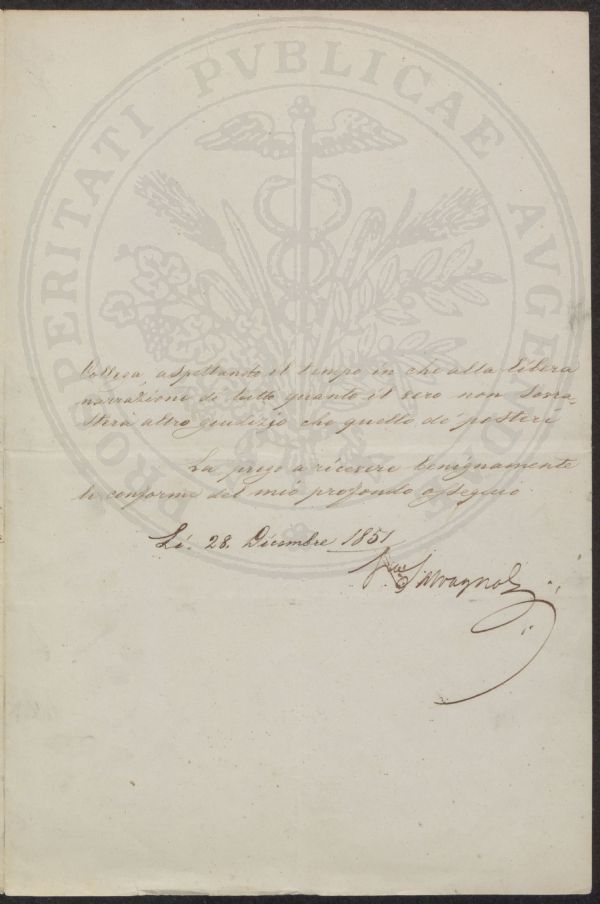 PROSPERITATI PVBLICAE AVGENDAE
Collega, aspettando il tempo in che alla libera
narrazione di tutto quanto il vero non sovra-
sterà altro giudizio che quello de' posteri
La prego a ricevere benignamente
le conferme del mio profondo ossequio.
Lì. 28. Dicembre 1851
Salvagnoli